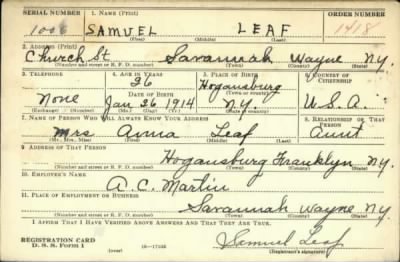 SERIAL NUMBER 1. NAME (Print) ORDER NUMBER
1006 SAMUEL LEAF 1418
(First) (Middle) (Last)
2. ADDRESS (Print)
Church St Savannah Wayne N.Y.
(Number and street or R. F. D. number) (Town) (County) (State)
3. TELEPHONE 4. AGE IN YEARS 5. PLACE OF BIRTH 6. COUNTRY OF CITIZENSHIP
26 Hogansburg
DATE OF BIRTH (Town or county)
None Jan 26 1914 N.Y. U.S.A.
(Exchange) (Number) (Mo.) (Day) (Yr.) (State or country)
7. NAME OF PERSON WHO WILL ALWAYS KNOW YOUR ADDRESS 8. RELATIONSHIP OF THAT PERSON
Mrs Anna Leaf Aunt
(Mr., Mrs., Miss) (First) (Middle) (Last)
9. ADDRESS OF THAT PERSON
Hogansburg Franklyn N.Y.
(Number and street or R. F. D. number) (Town) (County) (State)
10. EMPLOYER'S NAME
A. C. Martin
11. PLACE OF EMPLOYMENT OR BUSINESS
Savannah Wayne N.Y.
(Number and street or R. F. D. number) (Town) (County) (State)
I AFFIRM THAT I HAVE VERIFIED ABOVE ANSWERS AND THAT THEY ARE TRUE.
REGISTRATION CARD
D. S. S. Form 1 (over) Samuel Leaf
(Registrant's signature)